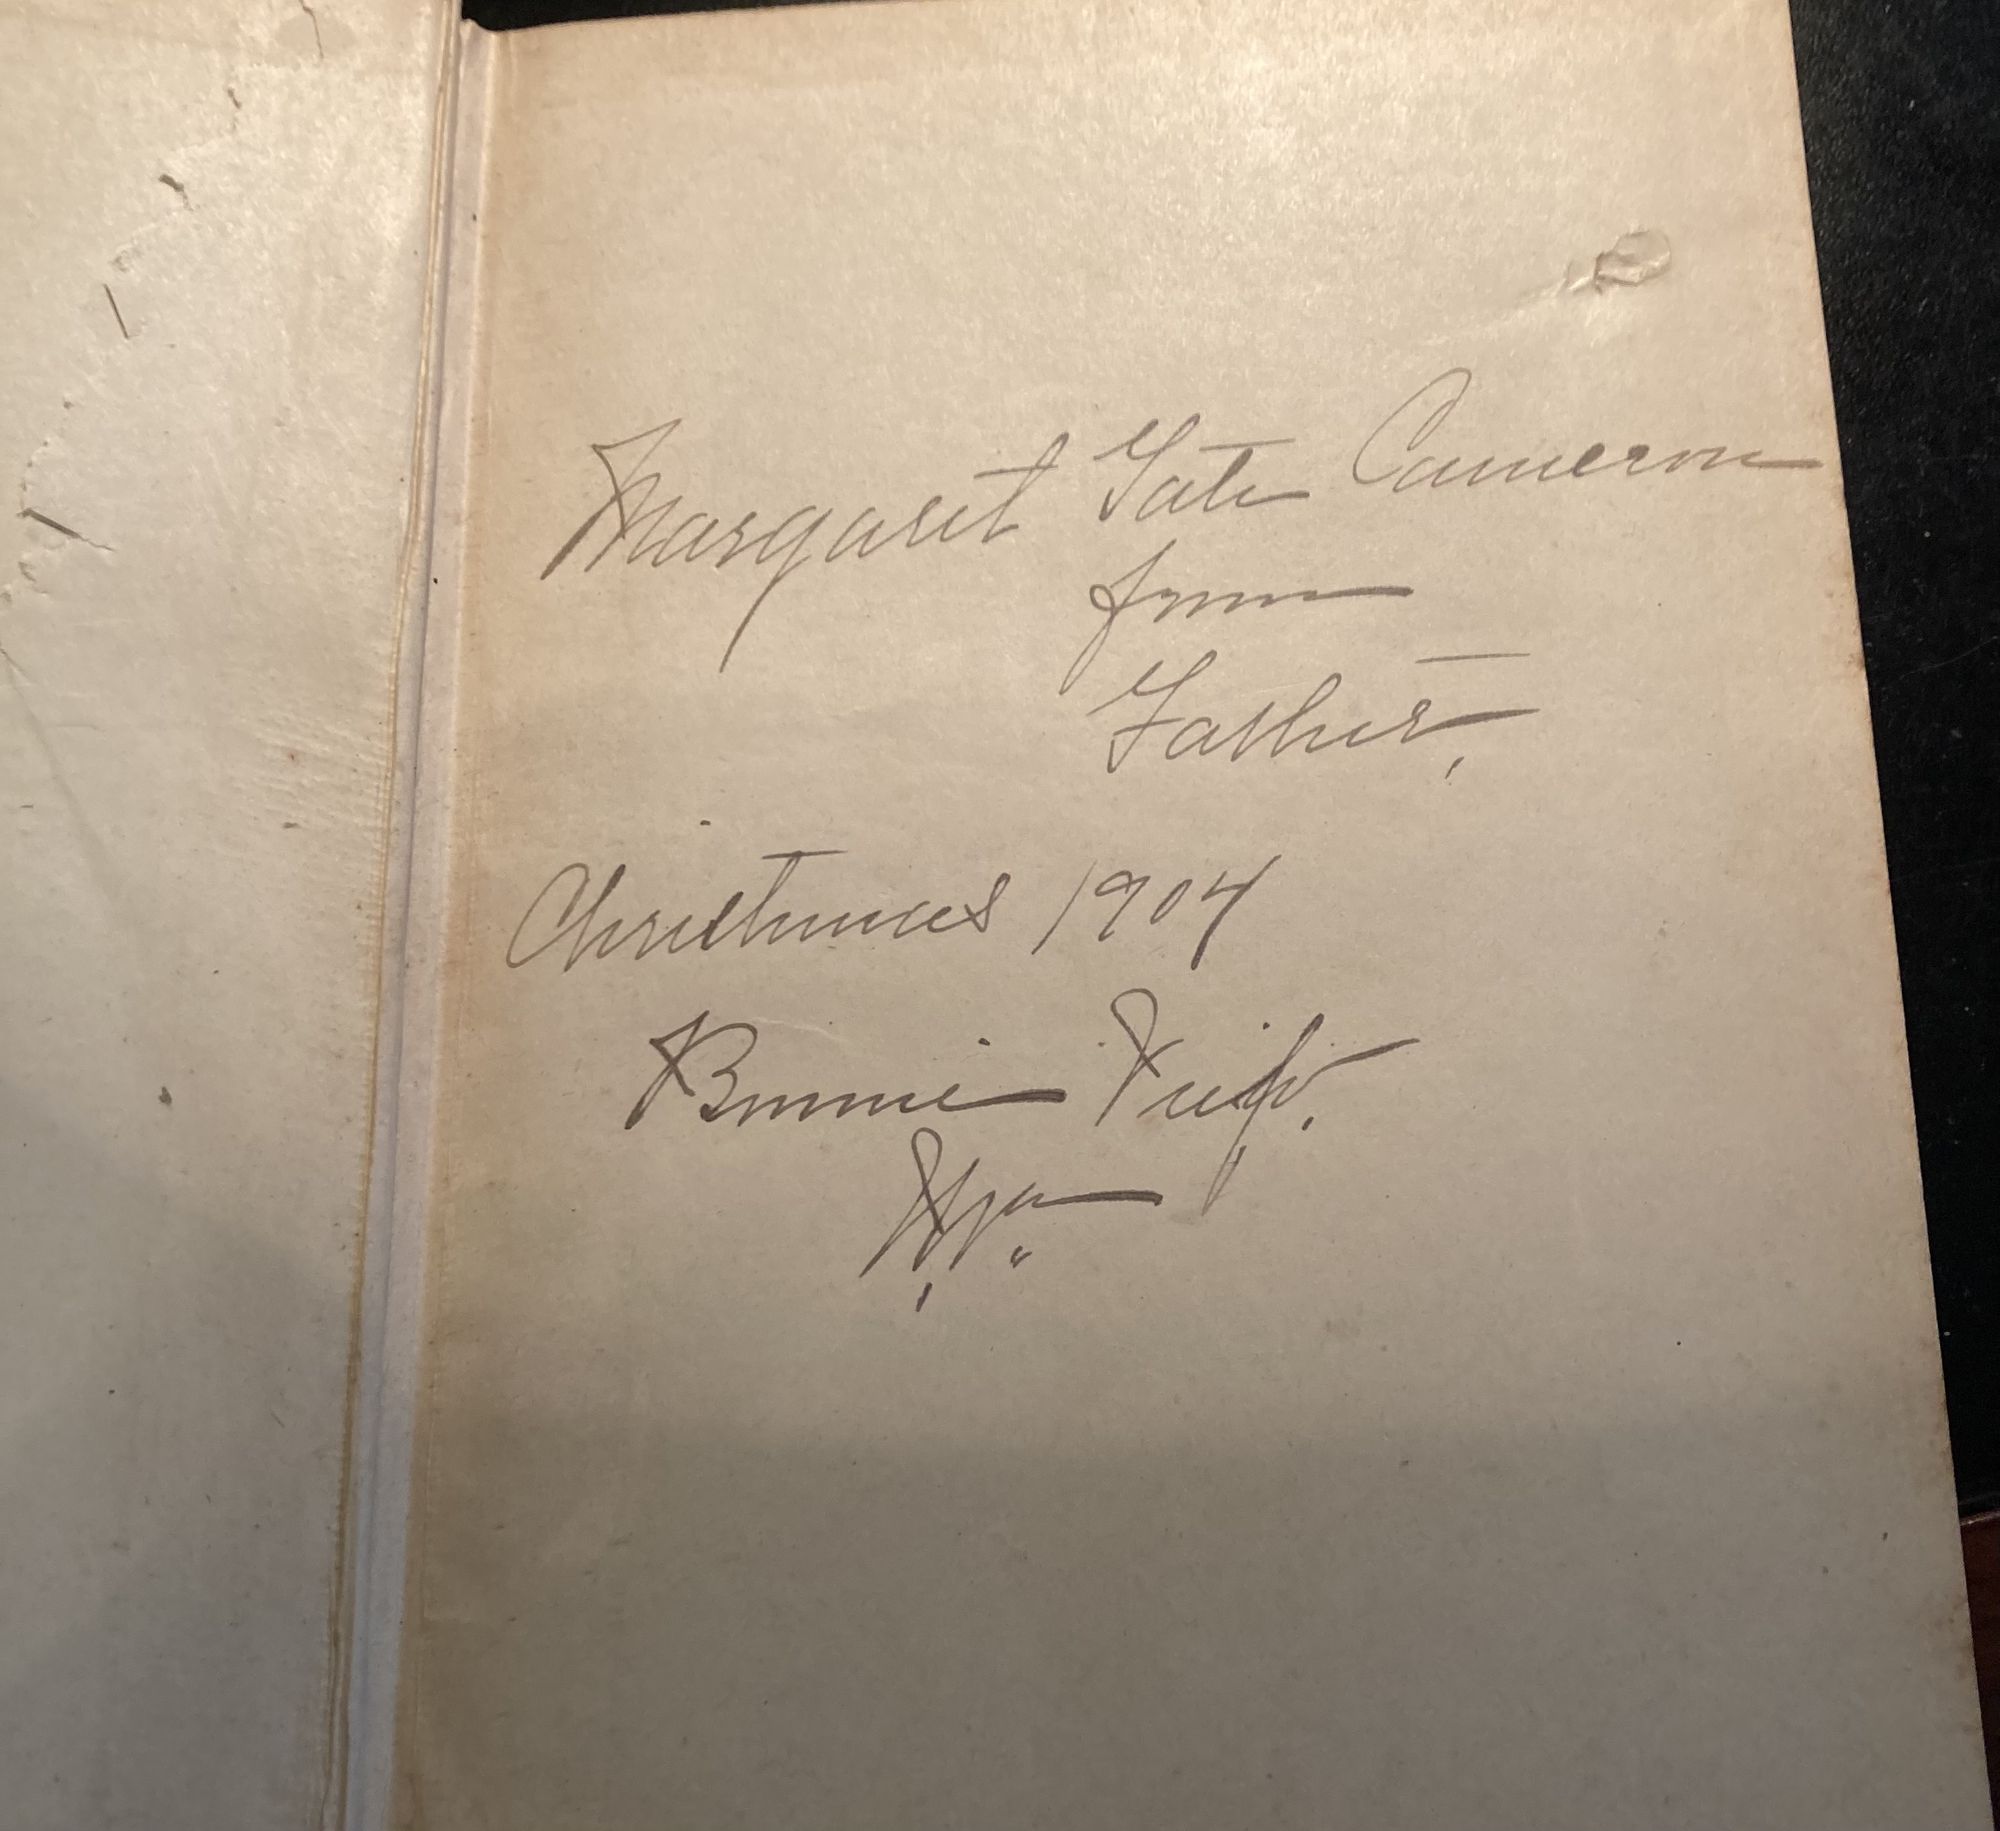 Margaret Tate Cameron
from
Father,
Christmas 1904
Bonnie